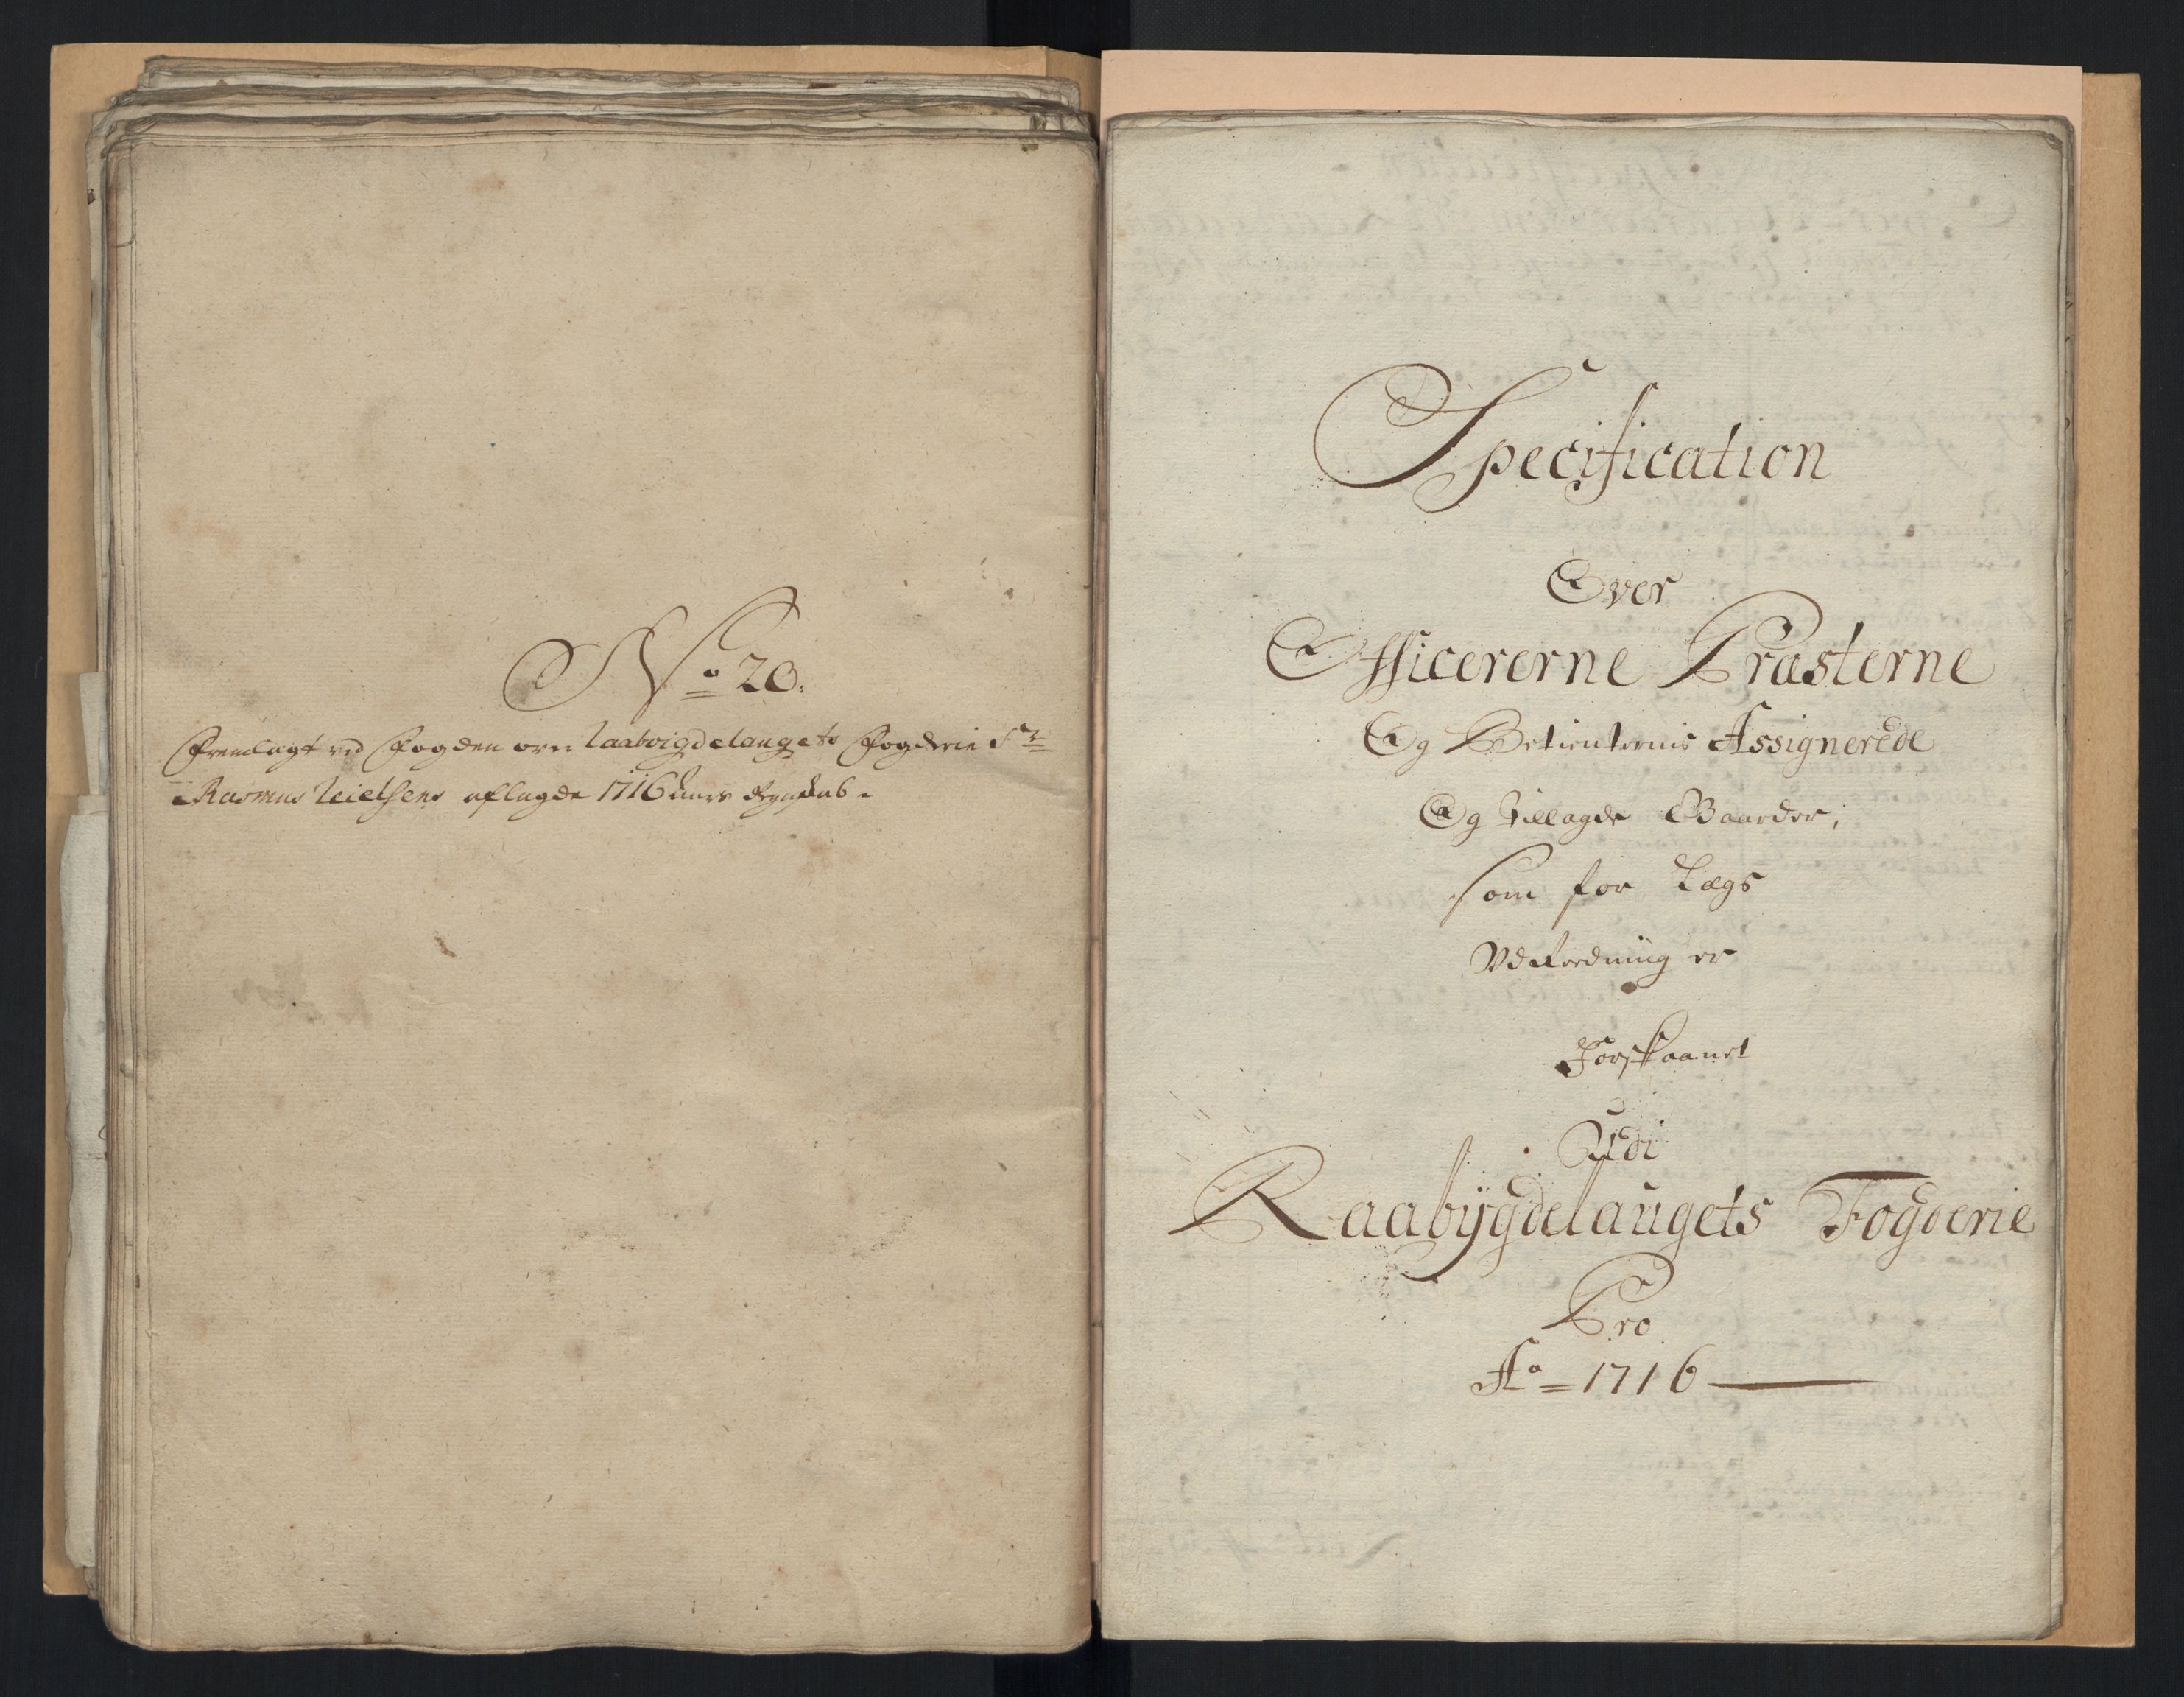 No 20.
Fremlagt ved Fogden over Raaboigdelaugets Fogderie Sr
Rasmus Nielsens aflagde 1716 aars Regnskab.
Specification
Over
Officererne Præsterne
Og Betienternis Assignerede
Og tillagde Gaarder,
som for Lægs
Udreedning er
Forskaanet
Udi
Raabÿgdelaugets Fogderie
Pro
Ao = 1716